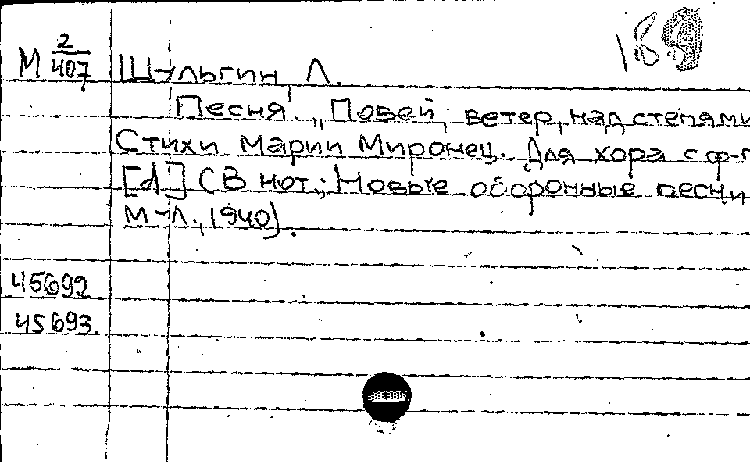 189
М 2/407 Шульгин, Л.
Песня. „Повей, ветер, над степями
Стихи Марии Миронец. Для хора с ф-п
[d] (В нот.: Новые оборонные песни
М-Л., 1940).
45692
45693.